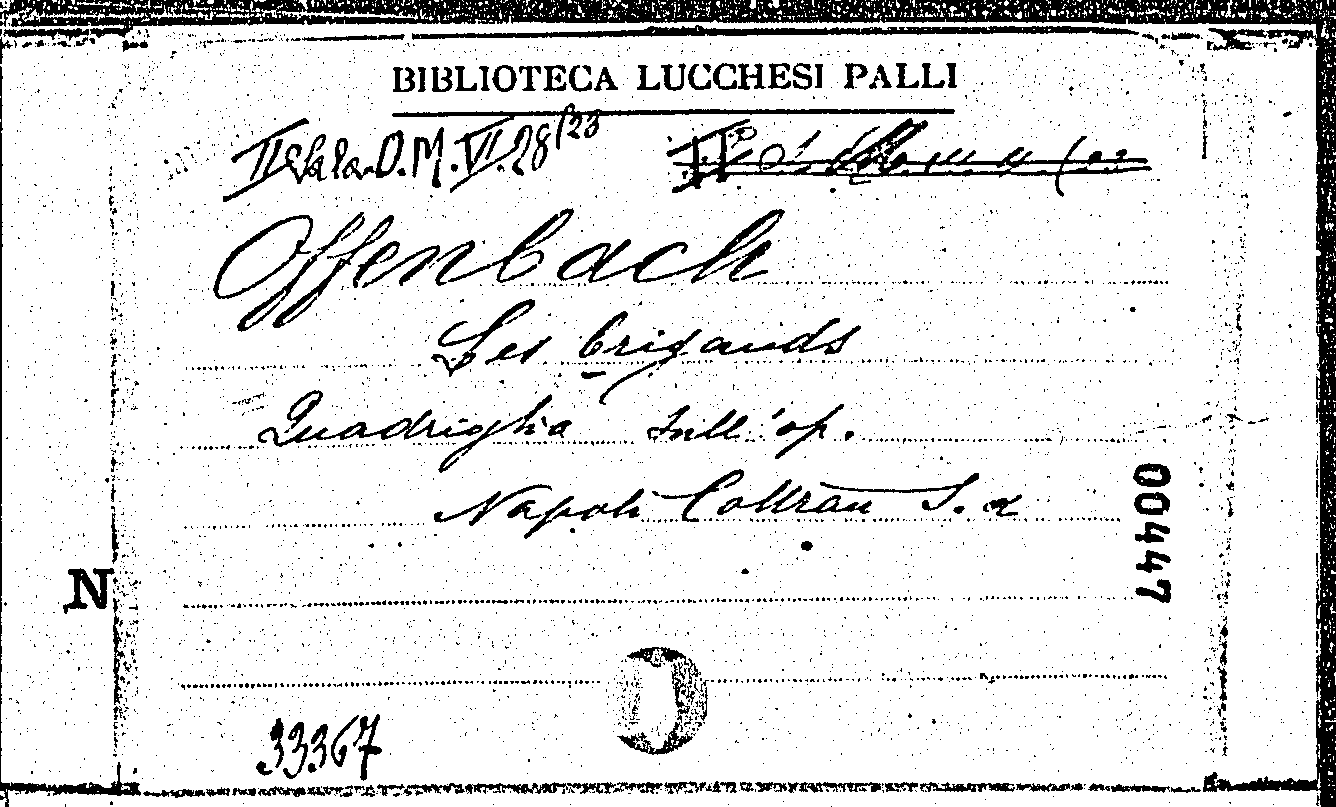 BIBLIOTECA LUCCHESI PALLI
II Sala O.M.VI.28/23
Offenbach
Les brigands
Quadriglia sull'op.
Napoli Cottrau S.d
00447
N
33367